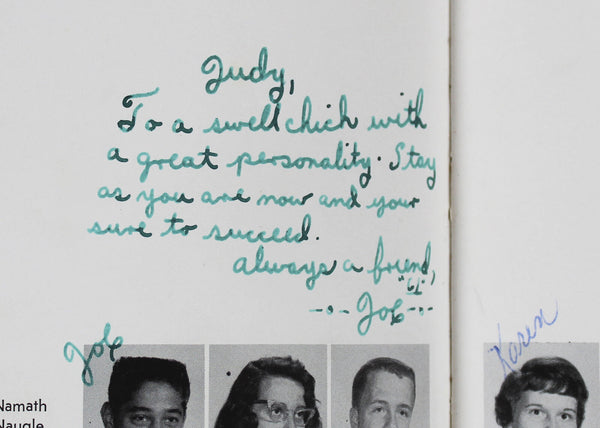 Judy,
To a swell chick with
a great personality. Stay
as you are now and your
sure to succeed.
Always a friend,
"61"
-- o - Joe - o --
Joe
Karen
Namath
Naugle